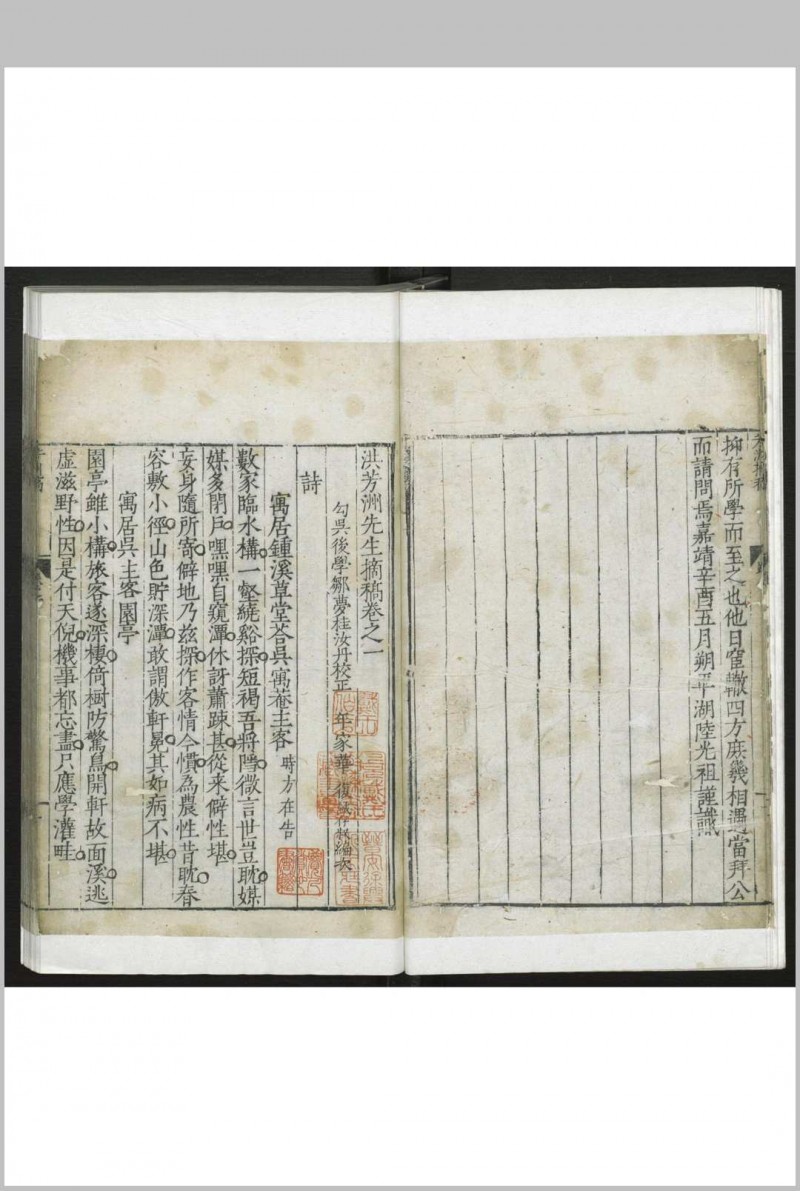 抑有所學而至之也他日窒轍四方庶幾相遇當拜公
而請問焉嘉靖辛酉五月朔平湖陸光祖謹識
洪芳洲先生摘稿卷之一
勾吳後學鄒夢桂汝丹校正 年家華復誠存叔編次
詩
寓居鍾溪草堂荅吳寓菴主客 時方在告
數家臨水構一壑繞谿探短褐吾將隱微言世豈耽媒
媒多閉戶嘿嘿自窺潭休訝蕭踈甚從来僻性堪
妄身隨所寄僻地乃茲探作客情今慣為農性昔耽春
容敷小徑山色貯深潭敢謂傲軒冕其如病不堪
寓居吳主客園亭
園亭雖小構旅客遂深棲倚樹防驚鳥開軒故面溪逃
虛滋野性因是付天倪機事都忘盡只應學灌畦